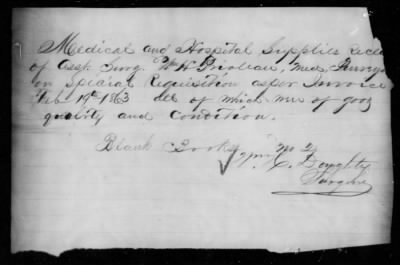 Medical and Hospital Supplies Recd
of Asst. Surg. W. H. Prioleau, Med. Purvyr
on Special Requisition as per Invoice
Feb 19th 1863 all of which are of good
quality and condition.
Blank Books No 2
C. Doughty
Surgeon